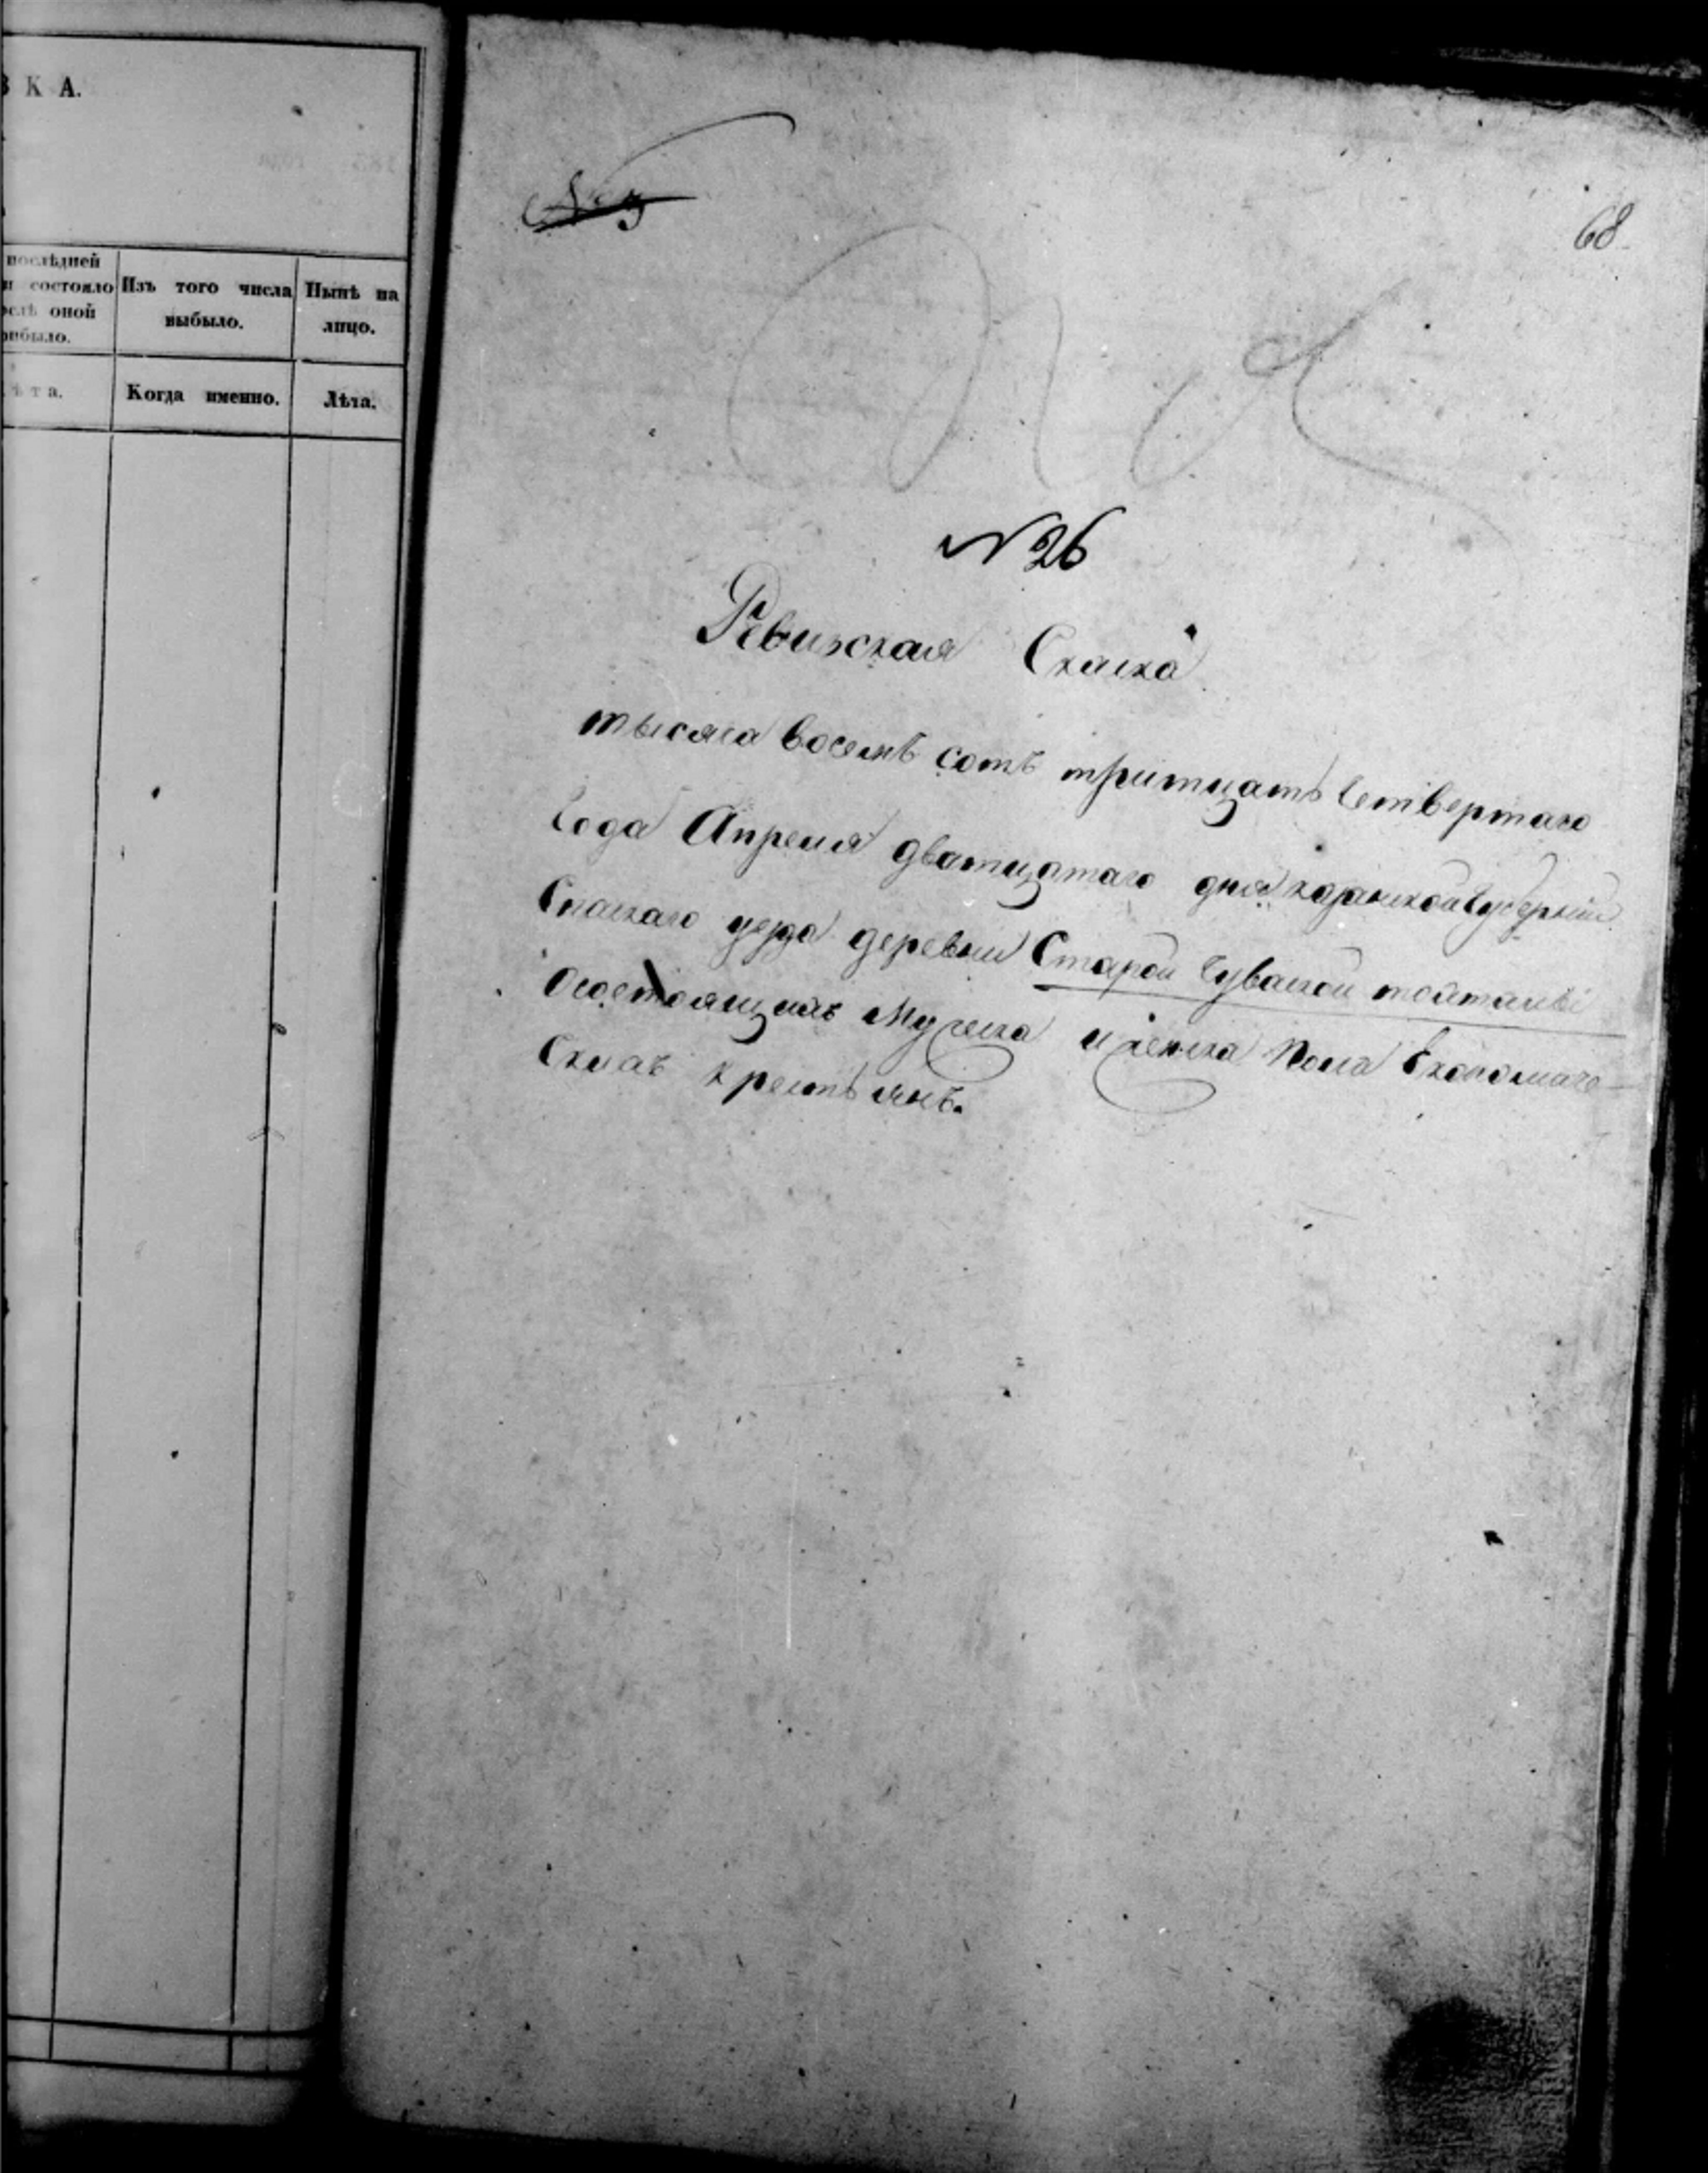 В К А.
последней
и состояло
ослѣ оной
рибыло.
Изъ того числа
выбыло.
Нынѣ на
лицо.
ѣ т а.
Когда именно.
Лѣта.
68
№ 26
Ревизская Скаска
тысяча восемъ сотъ тритцать четвертаго
Года Апреля дватцатаго дня казанской губернии
Спаскаго уезда деревни Старой Чуваской
Осостоящихъ Мужеска и женска пола Економиче
Скихъ крестьянъ.